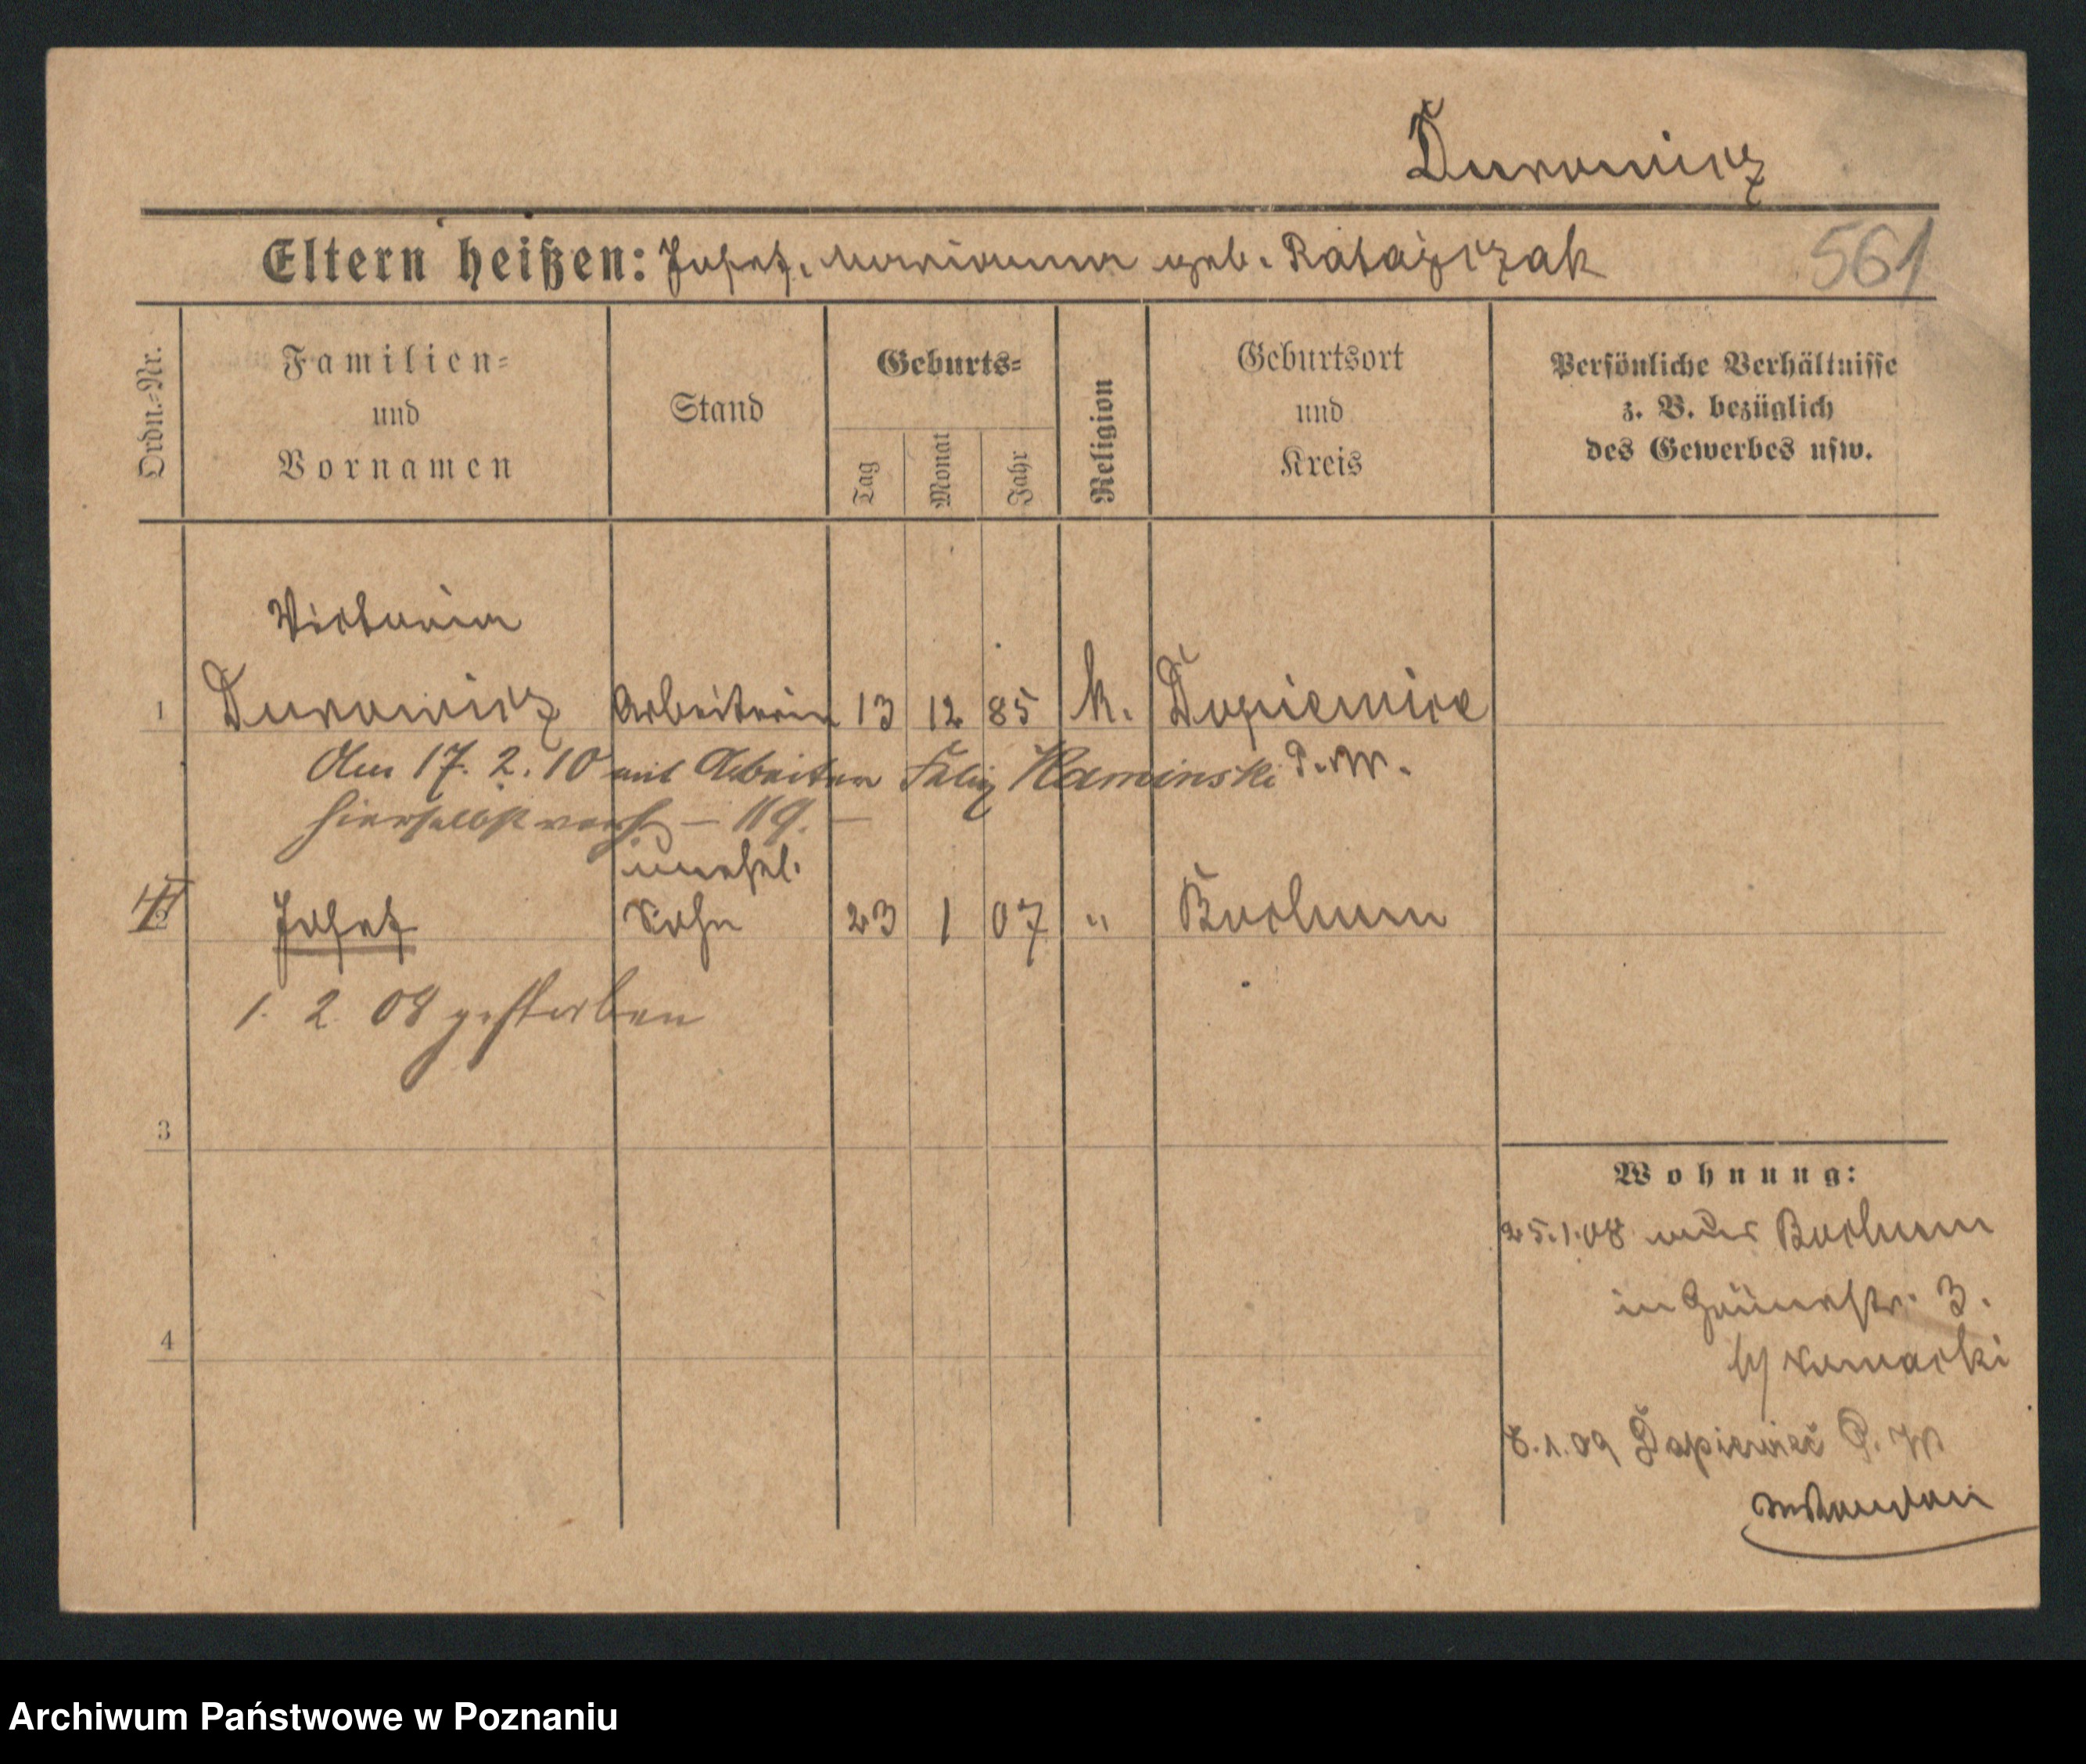 Durowicz
Eltern heißen: Josef, Marianna geb. Ratajczak
561
Ordn.-Nr.
Familien-
und
Vornamen
Stand
Geburts-
Tag
Monat
Jahr
Religion
Geburtsort
und
Kreis
Persönliche Verhältnisse
z. B. bezüglich
des Gewerbes usw.
Victoria
1 Durowicz Arbeiterin 13 12 85 k. Dopiewiec
P. W.
Am 17. 2. 10 mit Arbeiter Felix Kaminski
hierselbst verh. – 119. –
unehel.
Josef Sohn 23 1 07 " Bochum
1. 2. 08 gestorben
3
4
Wohnung:
25.1.08 aus Bochum
in Grünestr. 3.
b/ Nowacki
8.1.09 Dopiewiec P. W
Archiwum Państwowe w Poznaniu